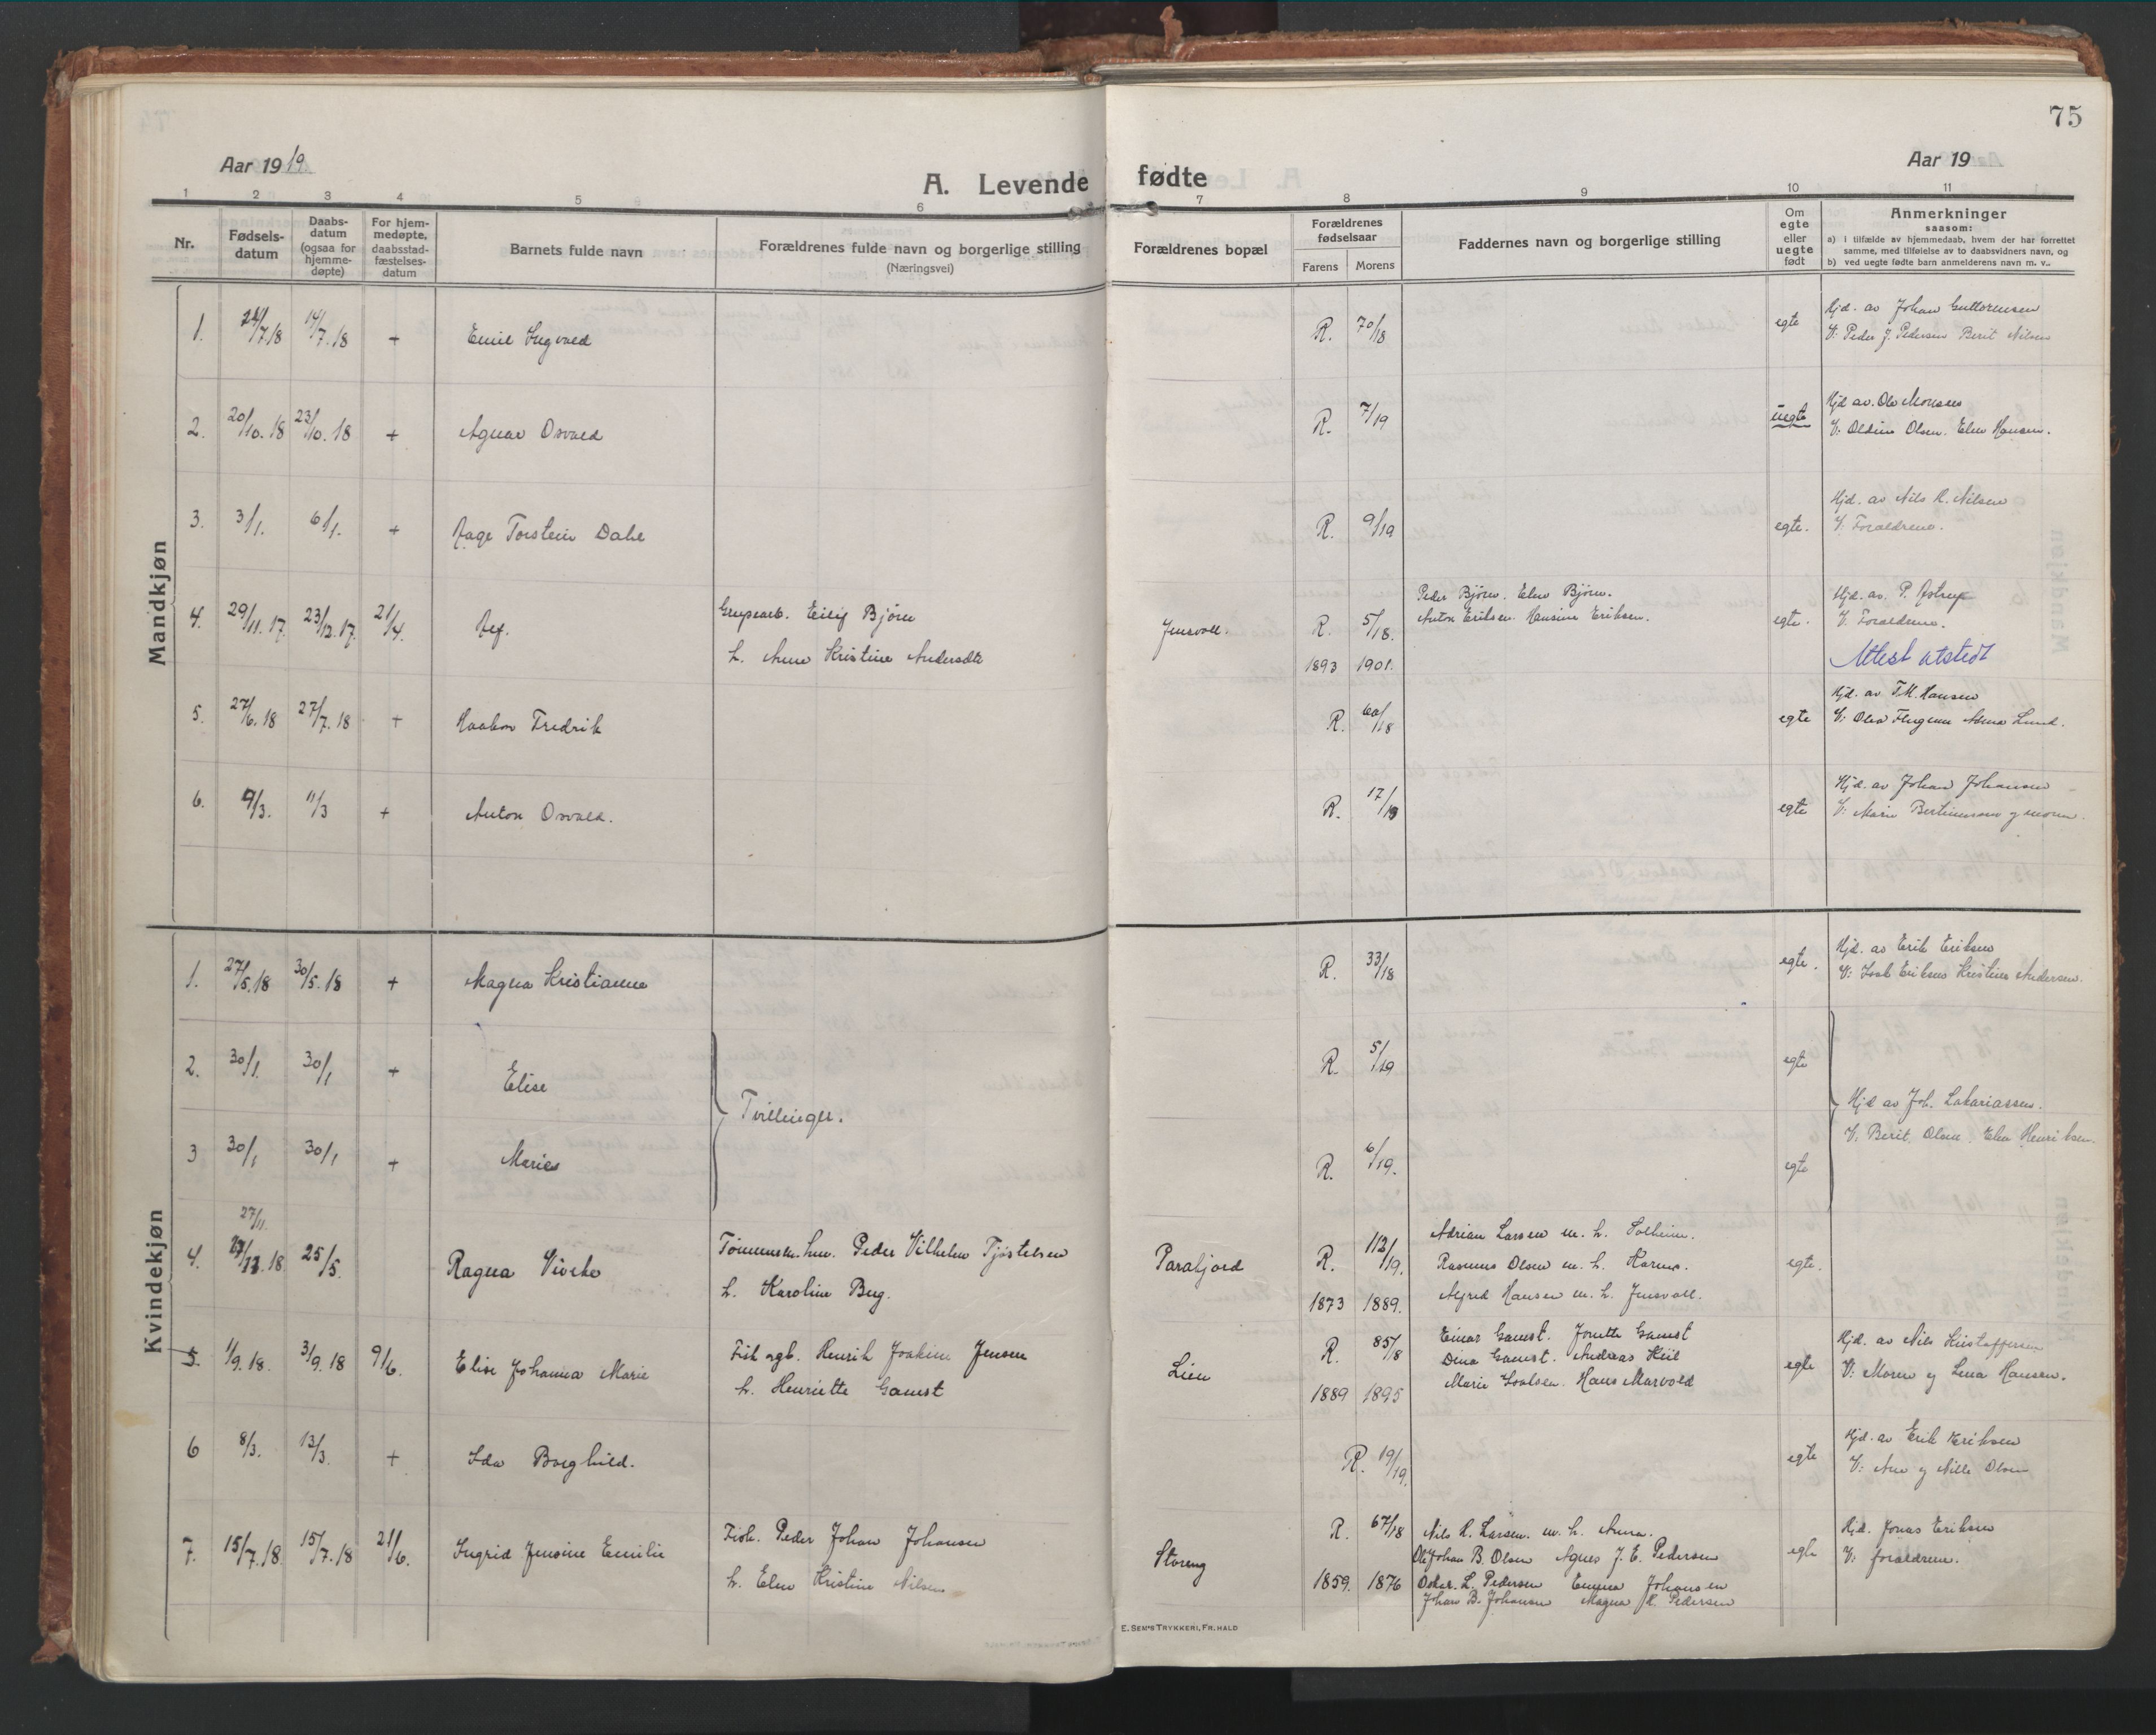 75
Aar 1919.
Aar 19
A. Levende fødte
1 2 3 4 5 6 7 8 9 10 11
Nr.
Fødsels-
datum
Daabs-
datum
(ogsaa for
hjemme-
døpte)
For hjem-
medøpte,
daabsstad-
fæstelses-
datum
Barnets fulde navn
Forældrenes fulde navn og borgerlige stilling
(Næringsvei)
Forældrenes bopæl
Forældrenes
fødselsaar
Farens Morens
Faddernes navn og borgerlige stilling
Om
egte
eller
uegte
født
Anmerkninger
saasom:
a) I tilfælde av hjemmedaab, hvem der har forrettet
samme, med tilføielse av to daabsvidners navn, og
b) ved uegte fødte barn anmelderens navn m. v..
Mandkjøn
1. 7.18 14/7.18 + Emil Ingvald R. 70/18 egte Hjd. av Johan Guttormsen
V: Peder J. Pedersen Berit Nilsen
2. 20/10.18 23/10.18 + Agnar Osvald R. 7/19 uegte Hjd av. Ole Monsen
V: Oldine Olsen. Elen Hansen.
3. 3/1. 6/1. + Aage Torstein Dahl R. 9/19 egte. Hjd. av Nils R. Nilsen
V: Forældrene.
4. 29/11.17. 23/12.17. 21/4. Leif. Grupearb. Eilif Bjørn Jensvoll. R. 5/18. Peder Bjørn. Elen Bjørn. egte. Hjd. av. P. Astrup
h. Anna Kristine Andersdtr 1893 1901. Anton Eriksen. Hansine Eriksen. V. Forældrene.
Attest utstedt
5. 27/6.18 27/7.18 + Haakon Fredrik R. 60/18 egte Hjd. av T.M. Hansen
V: Olea Anna Lund.
6. 9/3. 11/3 + Anton Osvald. R. 17/19 egte Hjd. av Johan Johansen
V: Marie og moren.
Kvindekjøn
1. 27/5.18 30/5.18 + Magna Kristianne R. 33/18 egte. Hjd. av Erik Eriksen
V: Isak Eriksen Kristine Andersen.
2. 30/1. 30/1 + Elise R. 5/19 egte
Tvillinger. Hjd av Joh. Zakariassen.
V. Berit Olsen. Elen Henriksen.
3 30/1 30/1 + Marie R. 6/19. egte
27/11.
4. 18 25/5. Ragna Viveke Tømmerm. Peder Vilhelm Tjøstelsen Parafjord R. 112/19. Adrian Larsen m. h. Solheim. egte.
h. Karoline Berg. 1873 1889. Rasmus Olsen m. h.
Alfred Hansen m. h. Jensvoll.
5. 1/9.18. 3/9.18 9/6. Elise Johanna Marie Fisk. Henrik Joakim Jensen Lien R. 85/8 Einar Gamst. Jonette Gamst egte Hjd. av Nils Kristoffersen
h. Henriette Gamst 1889 1895 Dina Gamst. Andreas Kiil V: Moren og Lina Hansen.
Marie Isaksen. Hans Marvold
6 8/3. 13/3. + Ida Borghild. R. 19/19. egte Hjd. av Erik Eriksen
V: Ane og Nille Olsen
7. 15/7.18 15/7.18 21/6. Ingrid Jensine Emilie Fisk. Peder Johan Johansen Storeng R. 67/18 Nils R. Larsen. m. h. Anna. egte Hjd. Jonas Eriksen
h. Elen Kristine Nilsen 1859. 1876 Ole Johan B. Olsen Agnes J. E. Pedersen V: forældrene.
Oskar. L. Pedersen Emma Johansen
Johan B. Johansen Magna K. Pedersen
E. SEM'S TRYKKERI, FR.HALD